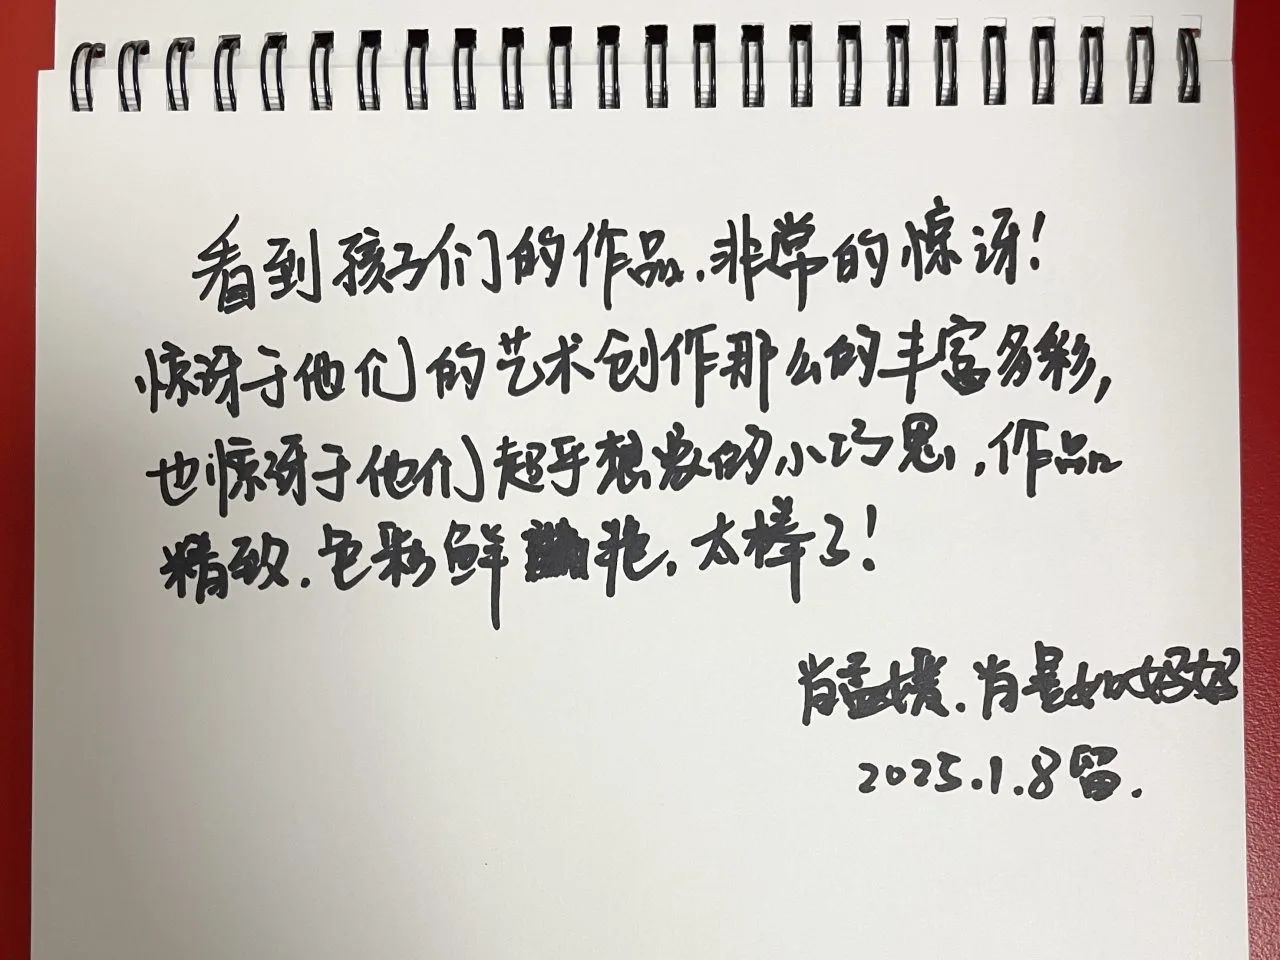 看到孩子们的作品,非常的惊讶!
惊讶于他们的艺术创作那么的丰富多彩,
也惊讶于他们超乎想象的小巧思,作品
精致.色彩鲜艳,太棒了!
肖孟媛.肖是如妈妈
2025.1.8留.